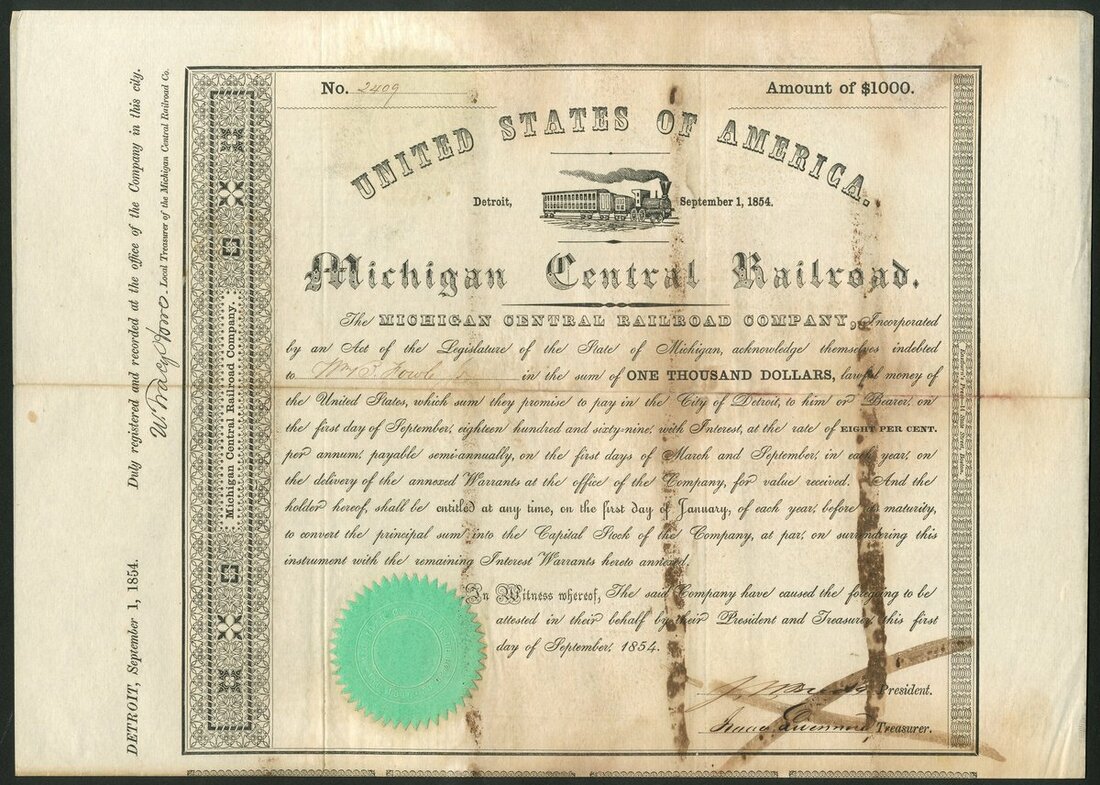 No. 2409
Amount of $1000.
UNITED STATES OF AMERICA.
Detroit, September 1, 1854.
Michigan Central Railroad.
The MICHIGAN CENTRAL RAILROAD COMPANY, Incorporated
by an Act of the Legislature of the State of Michigan, acknowledge themselves indebted
to Wm in the sum of ONE THOUSAND DOLLARS, lawful money of
the United States, which sum they promise to pay in the City of Detroit, to him or Bearer, on
the first day of September, eighteen hundred and sixty-nine, with Interest, at the rate of EIGHT PER CENT.
per annum, payable semi-annually, on the first days of March and September, in each year, on
the delivery of the annexed Warrants at the office of the Company, for value received. And the
holder hereof, shall be entitled at any time, on the first day of January, of each year, before its maturity,
to convert the principal sum into the Capital Stock of the Company, at par, on surrendering this
instrument with the remaining Interest Warrants hereto annexed.
In Witness whereof, The said Company have caused the foregoing to be
attested in their behalf by their President and Treasurer this first
day of September, 1854.
President.
Isaac Treasurer.
Michigan Central Railroad Company.
DETROIT, September 1, 1854. Duly registered and recorded at the office of the Company in this city.
W. Tracy Howe Local Treasurer of the Michigan Central Railroad Co.
State Street, Boston.